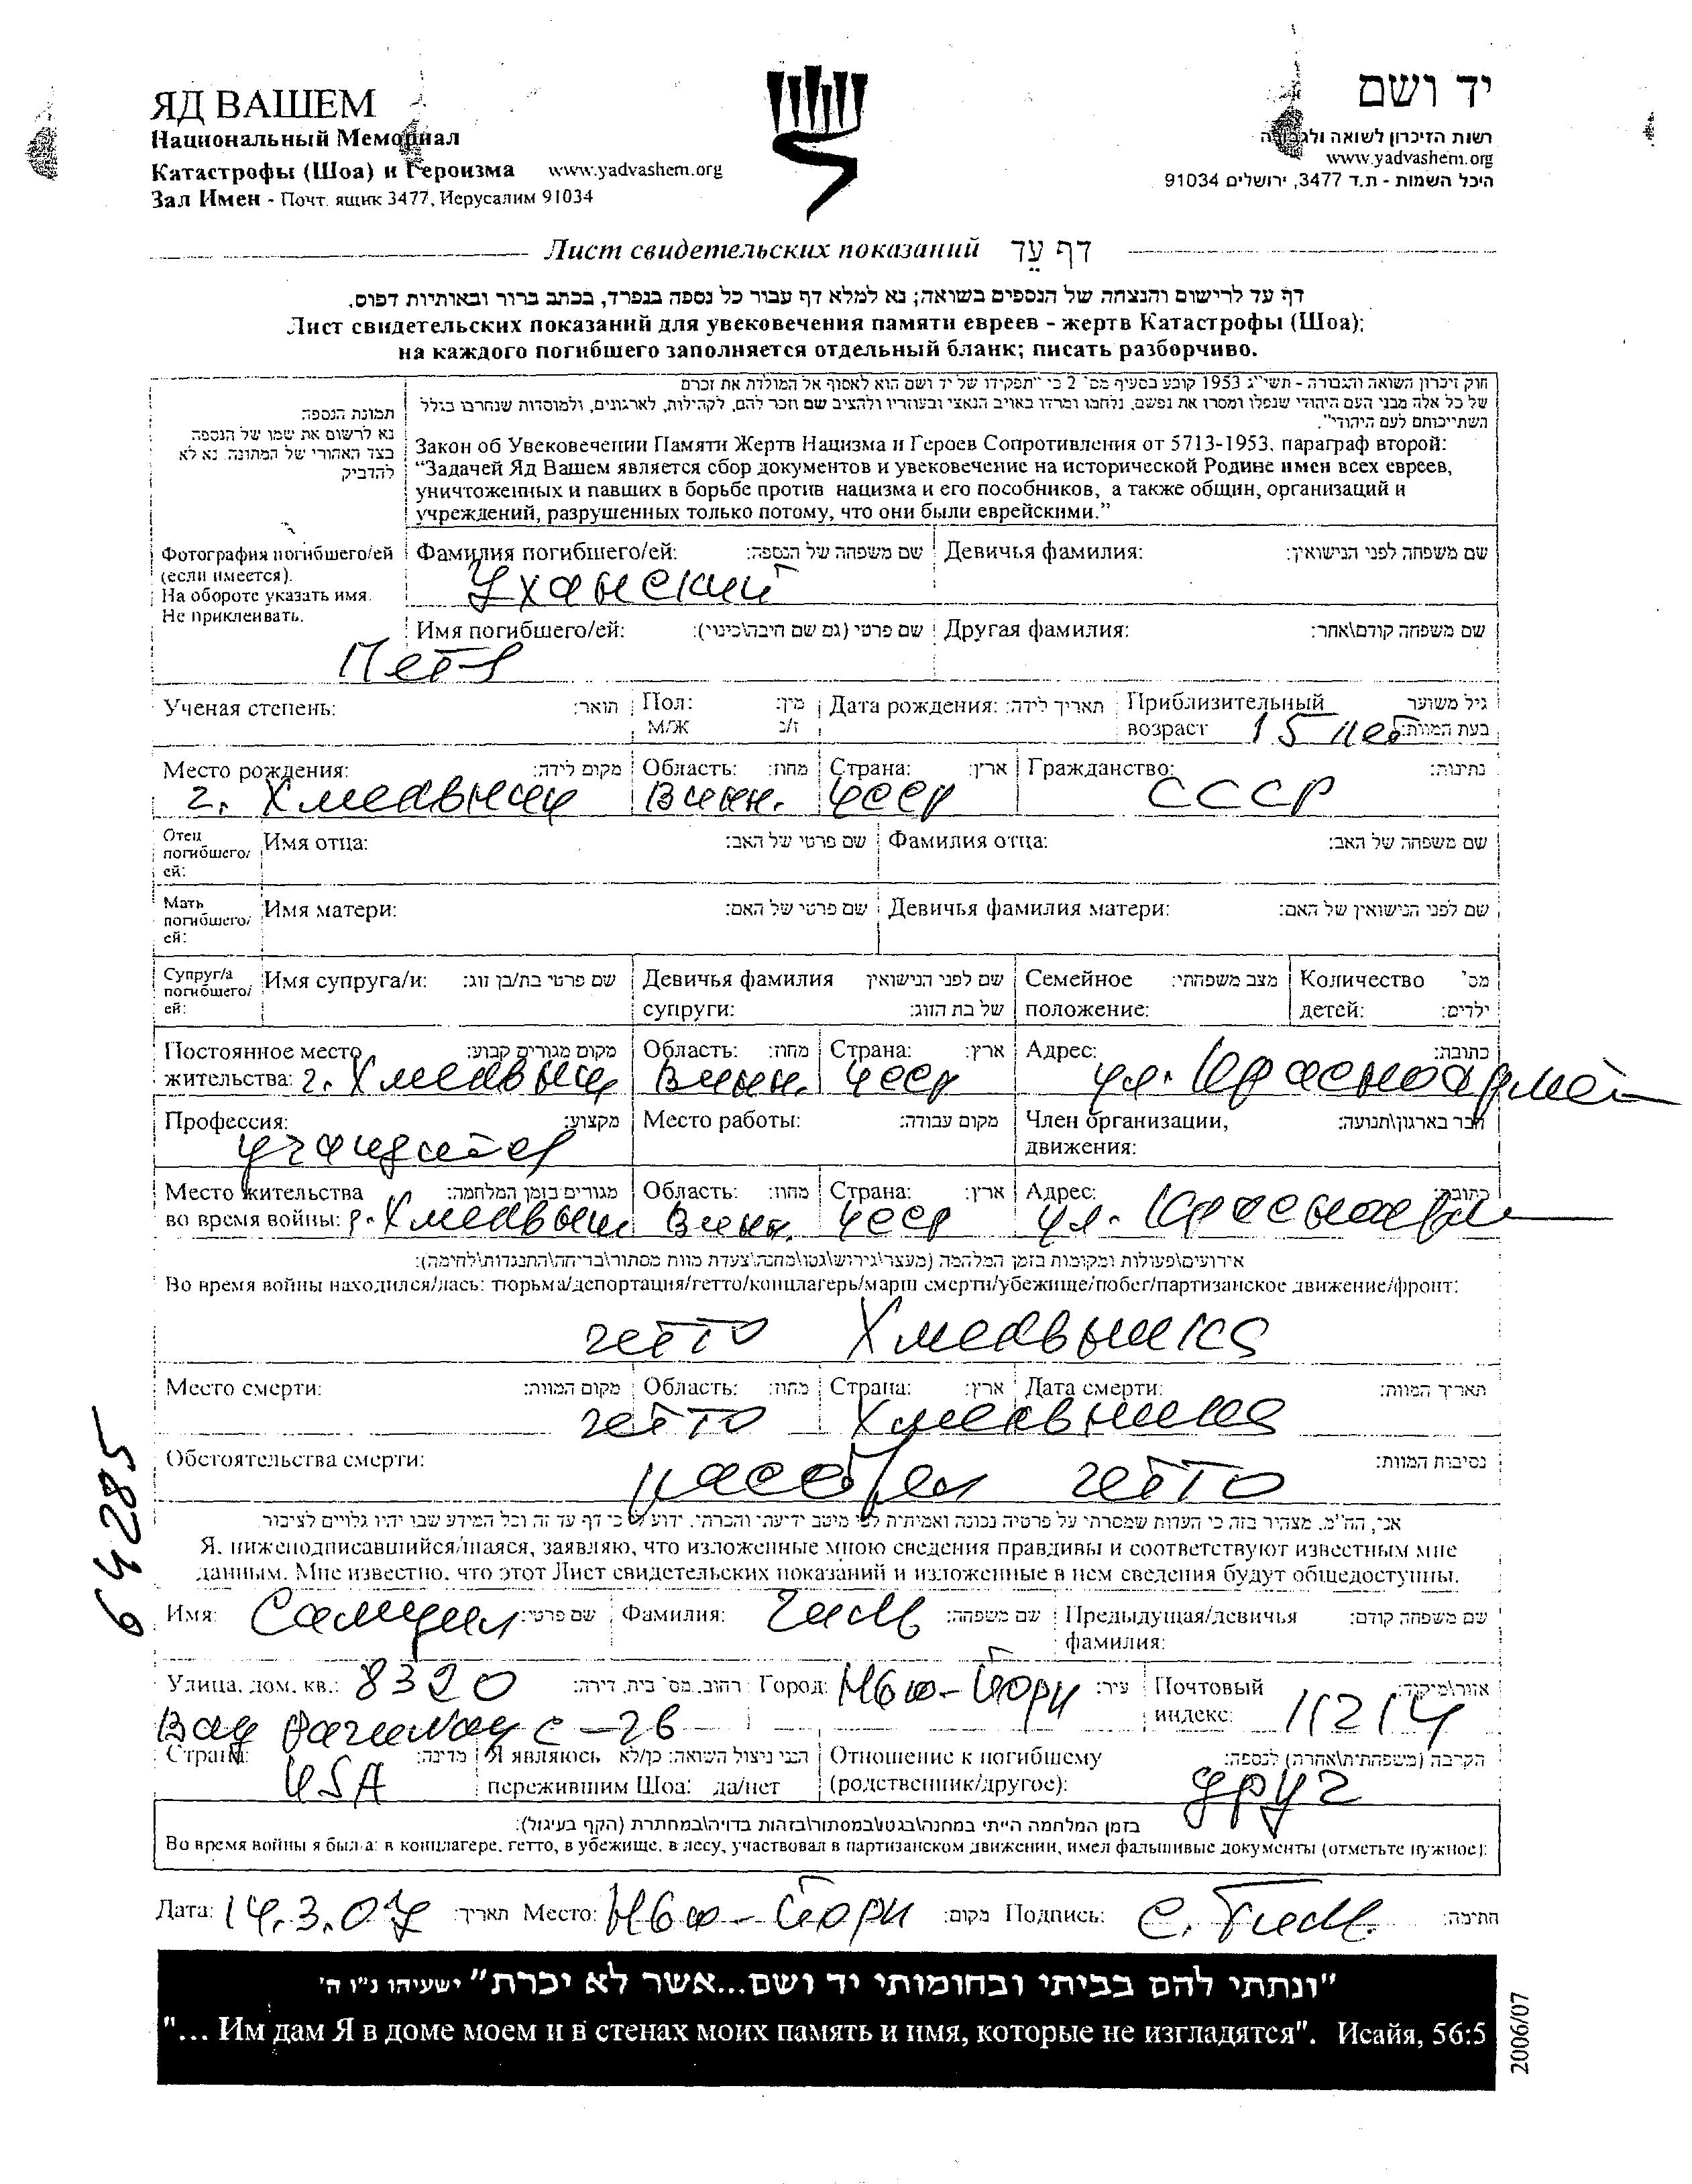 ЯД ВАШЕМ
Национальный Мемориал
Катастрофы (Шоа) и Героизма www.yadvashem.org
Зал Имен - Почт. ящик 3477, Иерусалим 91034
יד ושם
רשות הזיכרון לשואה ולגבורה
www.yadvashem.org
היכל השמות - ת.ד 3477, ירושלים 91034
Лист свидетельских показаний דף עֵד
דף עד לרישום והנצחה של הנספים בשואה; נא למלא דף עבור כל נספה בנפרד, בכתב ברור ובאותיות דפוס.
Лист свидетельских показаний для увековечения памяти евреев - жертв Катастрофы (Шоа);
на каждого погибшего заполняется отдельный бланк; писать разборчиво.
חוק זיכרון השואה והגבורה - תשי"ג 1953 קובע בסעיף מס' 2 כי "תפקידו של יד ושם הוא לאסוף אל המולדת את זכרם
של כל אלה מבני העם היהודי שנפלו ומסרו את נפשם, נלחמו ומרדו באויב הנאצי ובעוזריו ולהציב שם וזכר להם, לקהילות, לארגונים, ולמוסדות שנחרבו בגלל
השתייכותם לעם היהודי".
Закон об Увековечении Памяти Жертв Нацизма и Героев Сопротивления от 5713-1953, параграф второй:
"Задачей Яд Вашем является сбор документов и увековечение на исторической Родине имен всех евреев,
уничтоженных и павших в борьбе против нацизма и его пособников, а также общин, организаций и
учреждений, разрушенных только потому, что они были еврейскими."
תמונת הנספה
נא לרשום את שמו של הנספה
בצד האחורי של התמונה. נא לא
להדביק
Фотография погибшего/ей
(если имеется).
На обороте указать имя.
Не приклеивать.
Фамилия погибшего/ей: שם משפחה של הנספה: Девичья фамилия: שם משפחה לפני הנישואין:
Уханский
Имя погибшего/ей: שם פרטי (גם שם חיבה\כינוי): Другая фамилия: שם משפחה קודם\אחר:
Петя
Ученая степень: תואר: Пол: מין: Дата рождения: תאריך לידה: Приблизительный גיל משוער
М/Ж ז/נ возраст 15 лет בעת המוות:
Место рождения: מקום לידה: Область: מחוז: Страна: ארץ: Гражданство: נתינות:
г. Хмельник Винн. УССР СССР
Отец погибшего/ей: Имя отца: שם פרטי של האב: Фамилия отца: שם משפחה של האב:
Мать погибшего/ей: Имя матери: שם פרטי של האם: Девичья фамилия матери: שם לפני הנישואין של האם:
Супруг/а погибшего/ей: Имя супруга/и: שם פרטי בת/בן זוג: Девичья фамилия שם לפני הנישואין Семейное מצב משפחתי: Количество מס'
супруги: של בת הזוג: положение: детей: ילדים:
Постоянное место מקום מגורים קבוע: Область: מחוז: Страна: ארץ: Адрес: כתובת:
жительства: г. Хмельник Винн. УССР ул. Красноармей
Профессия: מקצוע: Место работы: מקום עבודה: Член организации, חבר בארגון\תנועה:
учащийся движения:
Место жительства מגורים בזמן המלחמה: Область: מחוז: Страна: ארץ: Адрес: כתובת:
во время войны: г. Хмельник Винн. УССР ул. Красноарм
אירועים\פעולות ומקומות בזמן המלחמה (מעצר\גירוש\גטו\מחנה\צעדת מוות מסתור\בריחה\התנגדות\לחימה):
Во время войны находился/лась: тюрьма/депортация/гетто/концлагерь/марш смерти/убежище/побег/партизанское движение/фронт:
гетто Хмельника
Место смерти: מקום המוות: Область: מחוז: Страна: ארץ: Дата смерти: תאריך המוות:
гетто Хмельника
Обстоятельства смерти: נסיבות המוות:
расстрел гетто
64285
אני, הח"מ, מצהיר בזה כי העדות שמסרתי על פרטיה נכונה ואמיתית לפי מיטב ידיעתי והכרתי. ידוע לי כי דף עד זה וכל המידע שבו יהיו גלויים לציבור
Я, нижеподписавшийся/шаяся, заявляю, что изложенные мною сведения правдивы и соответствуют известным мне
данным. Мне известно, что этот Лист свидетельских показаний и изложенные в нем сведения будут общедоступны.
Имя: Самуил שם פרטי: Фамилия: שם משפחה: Предыдущая/девичья שם משפחה קודם:
фамилия:
Улица, дом, кв.: 8320 רחוב, מס' בית, דירה: Город: Нью-Йорк עיר: Почтовый אזור\מיקוד:
индекс: 11214
Bay C-2B
Страна: USA מדינה: Я являюсь הנני ניצול השואה: כן/לא Отношение к погибшему הקרבה (משפחתית\אחרת) לנספה:
пережившим Шоа: да/нет (родственник/другое): друг
בזמן המלחמה הייתי במחנה\בגטו\במסתור\בזהות בדויה\במחתרת (הקף בעיגול):
Во время войны я был-а: в концлагере, гетто, в убежище, в лесу, участвовал в партизанском движении, имел фальшивые документы (отметьте нужное):
Дата: 14.3.07 תאריך: Место: Нью-Йорк מקום: Подпись: חתימה:
"ונתתי להם בביתי ובחומותי יד ושם...אשר לא יכרת" ישעיהו נ"ו ה'
"... Им дам Я в доме моем и в стенах моих память и имя, которые не изгладятся". Исайя, 56:5
2006/07